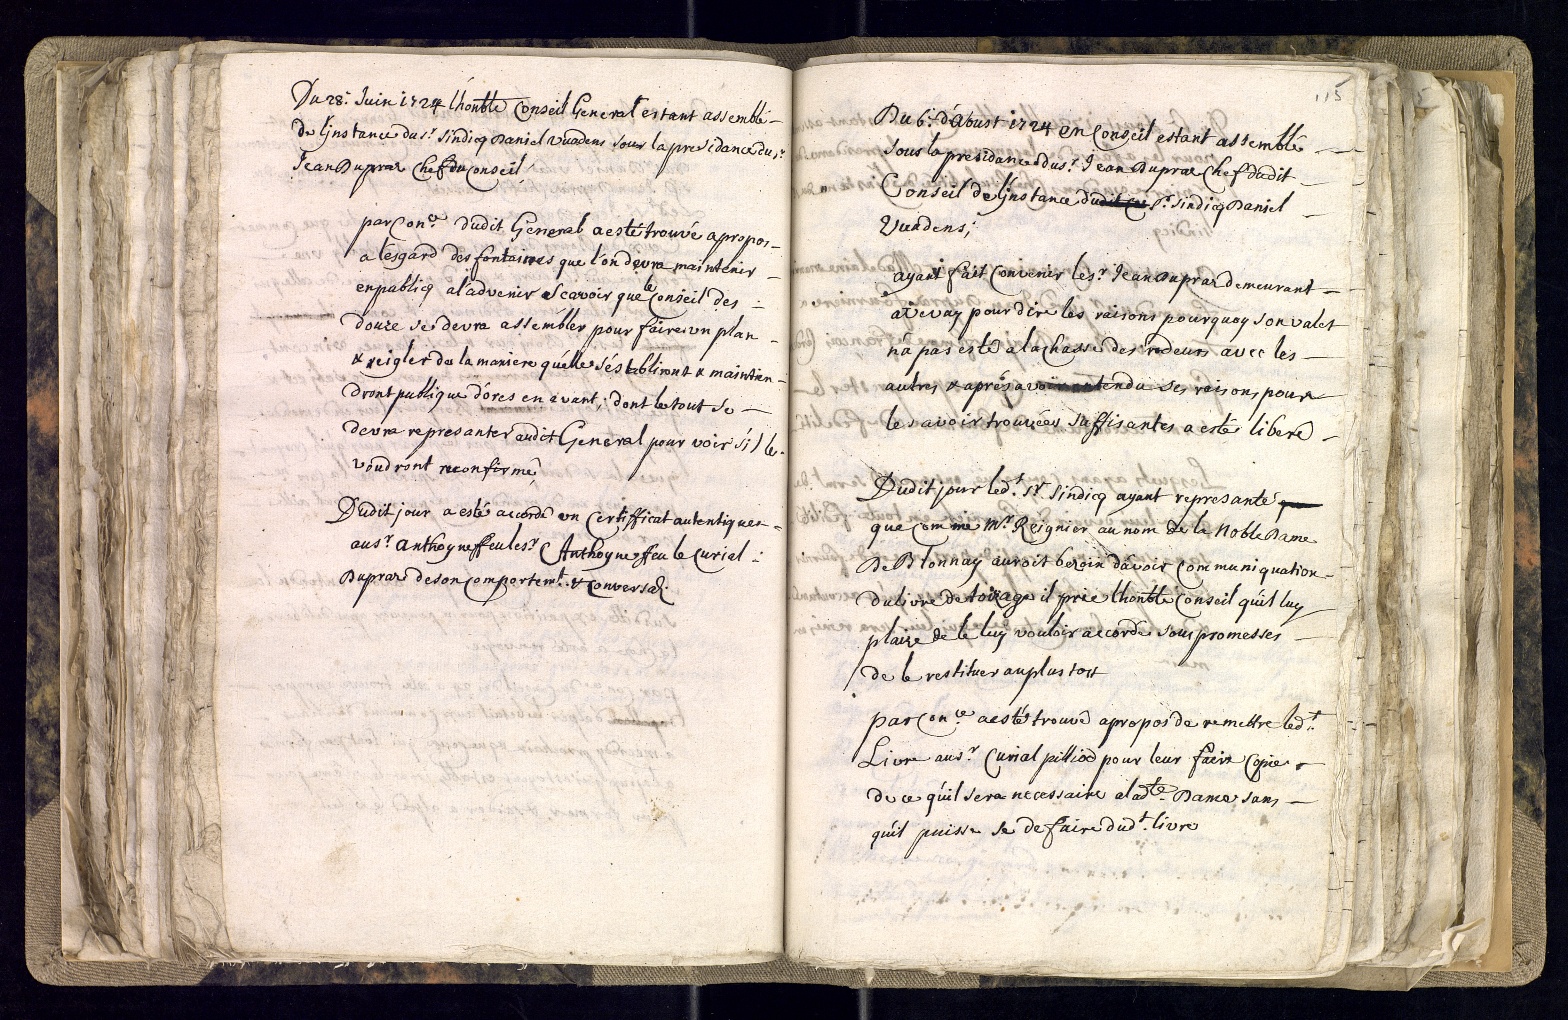 Du 28.e Juin 1724 l'honble Conseil General estant assemblé
de Ljnstance du sr. Sindicq Daniel Vuadens sous la presidance du sr.
Jean Dupraz Chef du Conseil
par Con.ce dudit General a esté trouvé a propos
a lésgard des fontaines que l'on devra maintenir
en publicq a l'advenir Scavoir que le Conseil des
douze se devra assembler pour faire vn plan
& reigler de la maniere qu'elle s'éstabliront & maintien
dront publique d'óres en avant, dont le tout se
devra represanter audit General pour voir s'il le
voudront reconfirmé,
Dudit jour a esté accordé vn Certifficat autentiques
au sr. Anthoyne ffeu le sr. Anthoyne ffeu le Curial
Dupraz de son Comportemt. & Conversaõn
115
Du 6.e d'Aoust 1724 en Conseil estant assemblé
sous la présidance du sr. Jean Dupraz Chef dudit
Conseil de Ljnstance du sr. Sindicq Daniel
Vuadens;
ayant fait Convenir le sr. Jean Dupraz demeurant
a Vevay pour dire les raisons pourquoy son valet
n'á pas esté a la chasse des rodeurs avec les
autres & aprés avoir entendu ses raisons, pour
les avoir trouvées suffisantes a estés liberé
Dudit jour led.t sr. Sindicq ayant represanté
que comme Mr. Reignier au nom de la Noble Dame
De Blonnay auroit bezoin d'avoir Communiquation
du livre de toizage il prie l'honble Conseil qu'il luy
plaize de le luy vouloir accordé sous promesses
de le restituer au plus tost
par Con.ce a estés trouvé a propos de remettre led.t
Livre au sr. Curial pilliod pour leur faire Copie
de ce qu'il sera necessaire a lad.te Dame sans
qu'il puisse se defaire dud.t livre